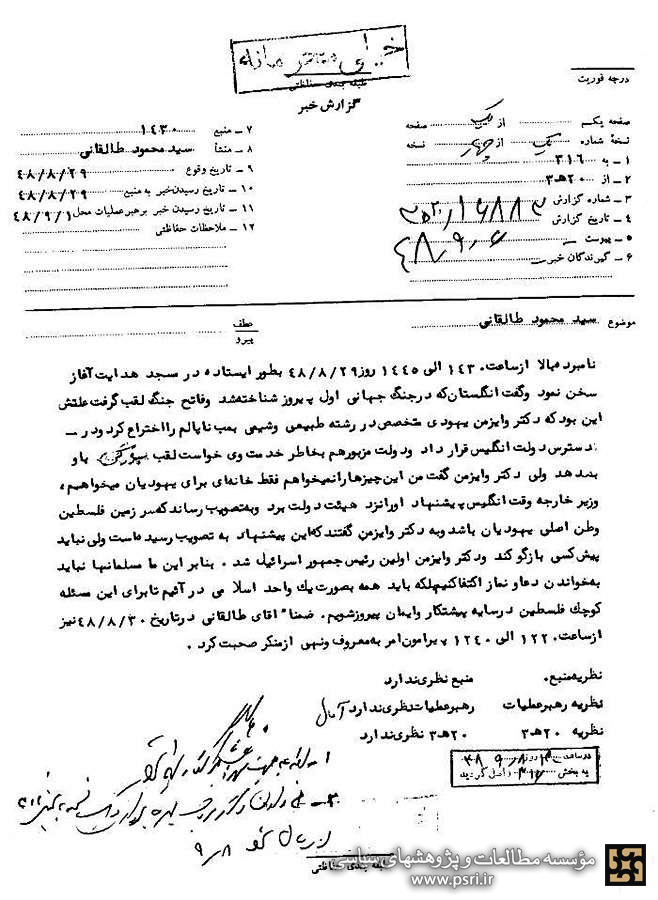 خیلی محرمانه
طبقه بندی حفاظتی
گزارش خبر
درجه فوریت
صفحه یکم از یک صفحه
نسخهٔ شماره یک از چهار نسخه
۱ – به ۳۱۶
۲ – از ۲۰ هـ ۳
۳ – شماره گزارش
۴ – تاریخ گزارش ۴۸/۹/۶
۵ – پیوست
۶ – گیرندگان خبر
۷ – منبع ۱۴۳۰
۸ – منشأ سید محمود طالقانی
۹ – تاریخ وقوع ۴۸/۸/۲۹
۱۰ – تاریخ رسیدن خبر به منبع ۴۸/۸/۲۹
۱۱ – تاریخ رسیدن خبر برهبر عملیات محل ۴۸/۹/۱
۱۲ – ملاحظات حفاظتی
موضوع سید محمود طالقانی
عطف
پیرو
نامبرده بالا از ساعت ۱۴۳۰ الی ۱۴۴۵ روز ۴۸/۸/۲۹ بطور ایستاده در مسجد هدایت آغاز
سخن نمود و گفت انگلستان که در جنگ جهانی اول پیروز شناخته شد و فاتح جنگ لقب گرفت علتش
این بود که دکتر وایزمن یهودی متخصص در رشته طبیعی و شیمی بمب ناپالم را اختراع کرد و در –
دسترس دولت انگلیس قرار داد و دولت مزبور هم بخاطر خدمت وی خواست لقب باو
بدهد ولی دکتر وایزمن گفت من این چیزها را نمیخواهم فقط خانه‌ای برای یهودیان میخواهم،
وزیر خارجه وقت انگلیس پیشنهاد او را نزد هیئت دولت برد و به تصویب رساند که سرزمین فلسطین
وطن اصلی یهودیان باشد و به دکتر وایزمن گفتند که این پیشنهاد به تصویب رسیده است ولی نباید
پیش کسی بازگو کند و دکتر وایزمن اولین رئیس جمهور اسرائیل شد. بنابر این ما مسلمانها نباید
به خواندن دعا و نماز اکتفا کنیم بلکه باید همه بصورت یک واحد اسلامی در آئیم تا برای این مسئله
کوچک فلسطین در سایه پیشتکار و ایمان پیروز شویم. ضمناً آقای طالقانی در تاریخ ۴۸/۸/۳۰ نیز
از ساعت ۱۲۲۰ الی ۱۲۴۰ پیرامون امر به معروف و نهی از منکر صحبت کرد.
نظریه منبع. منبع نظری ندارد
نظریه رهبر عملیات رهبر عملیات نظری ندارد
نظریه ۲۰ هـ ۳ ۲۰ هـ ۳ نظری ندارد
در ساعت روز ۴۸/۹/۸
به بخش ۳۱۶ واصل گردید
۹/۸
طبقه بندی حفاظتی
مؤسسه مطالعات و پژوهشهای سیاسی
www.psri.ir